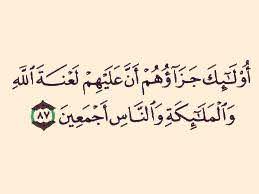 أُوْلَٰٓئِكَ جَزَآؤُهُمۡ أَنَّ عَلَيۡهِمۡ لَعۡنَةَ ٱللَّهِ
وَٱلۡمَلَٰٓئِكَةِ وَٱلنَّاسِ أَجۡمَعِينَ ٨٧